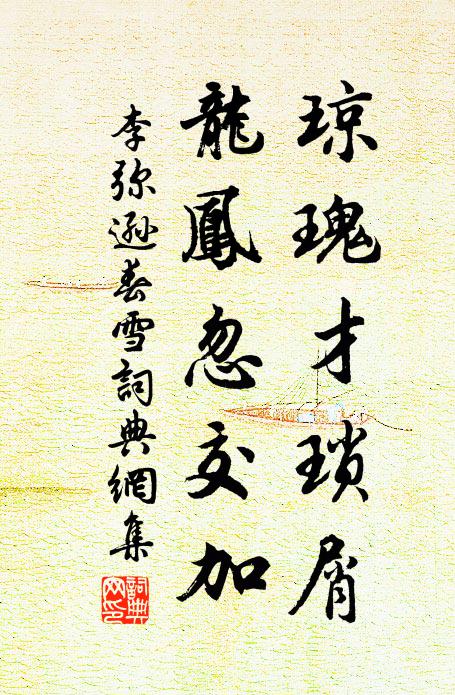 琼瑰才琐屑
龍鳳忽交加
李弥遜春雪詞典網集
詞典網印